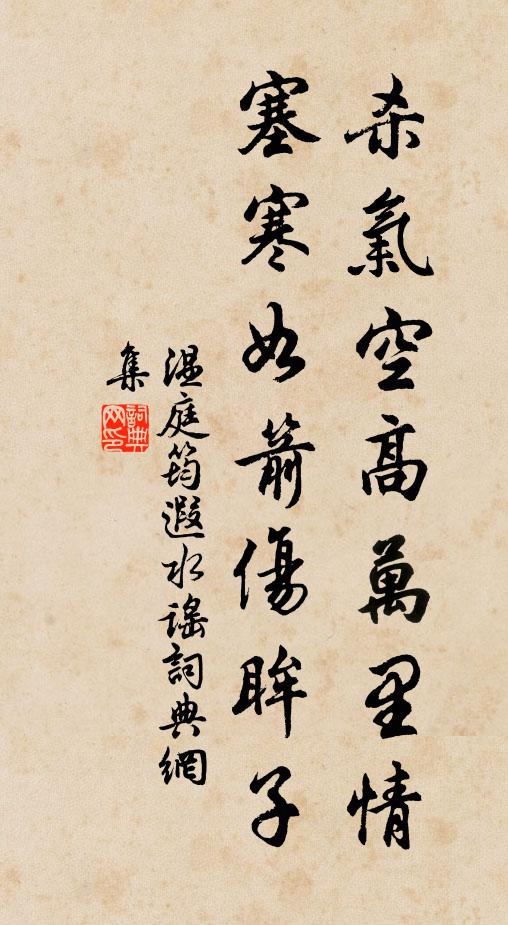 杀氣空高萬里情
塞寒如箭傷眸子
温庭筠遐水謠詞典網
集
詞典网印